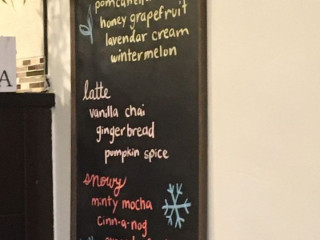 honey grapefruit
lavendar cream
wintermelon
A
latte
vanilla chai
gingerbread
pumpkin spice
snowy
minty mocha
cinn-a-nog